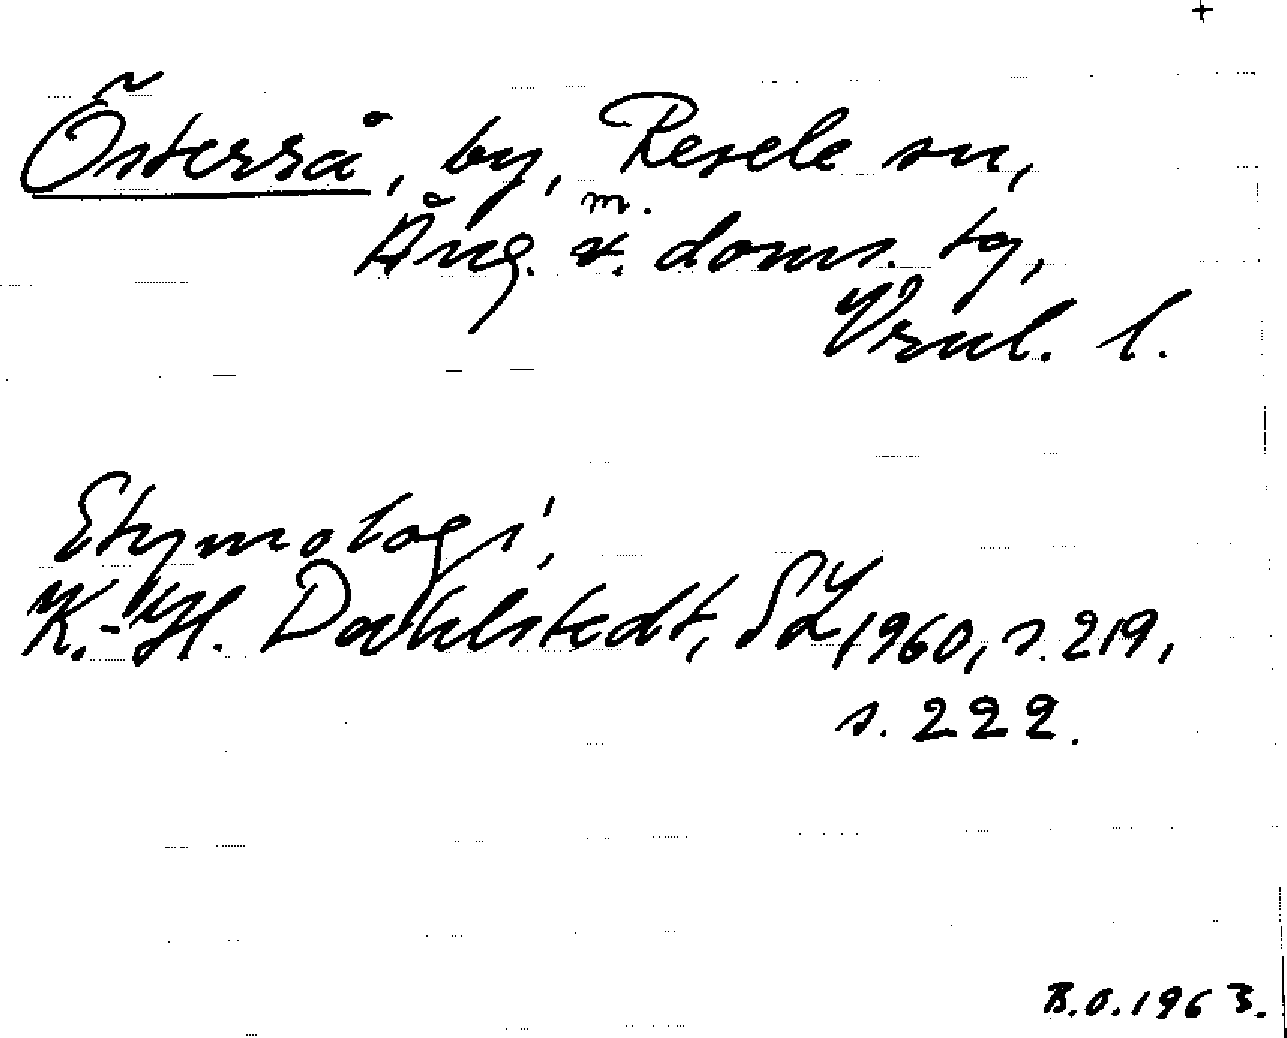 +
Österrå, by, Resele sn,
Ång. m. doms. tg,
Vnl. l.
Etymologi,
K.-H. Dahlstedt, SL 1960, s. 219,
s. 222.
B.O. 1963.